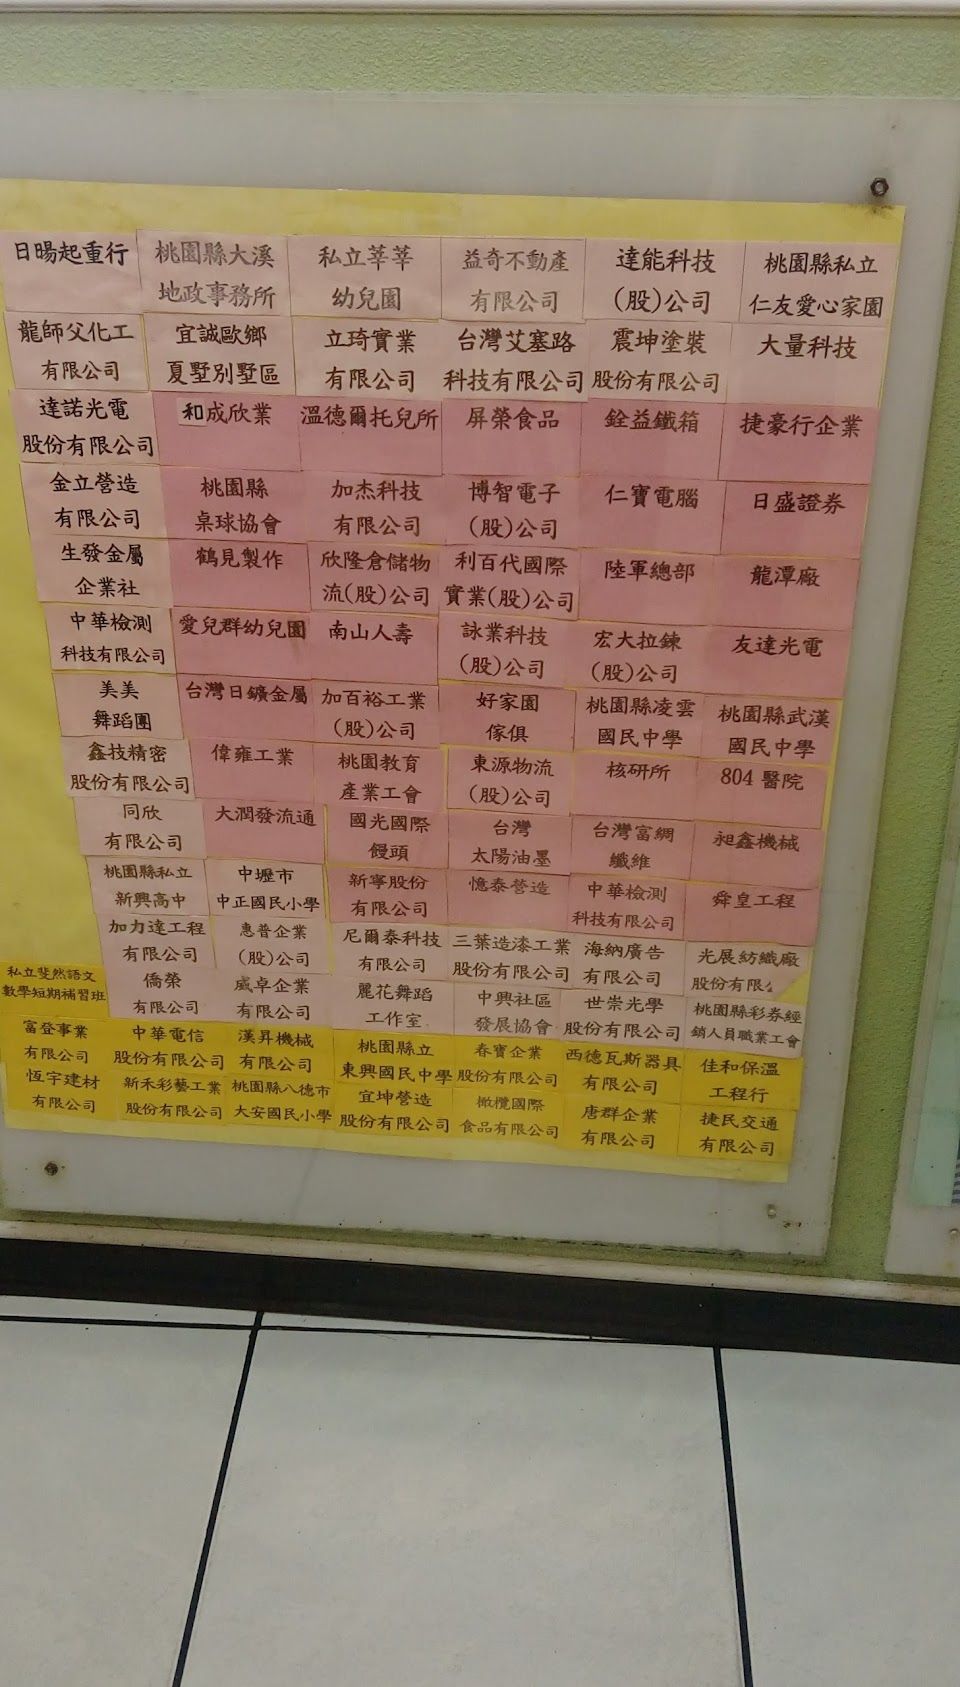 日暘起重行
桃園縣大溪
地政事務所
私立莘莘
幼兒園
益奇不動產
有限公司
達能科技
(股)公司
桃園縣私立
仁友愛心家園
龍師父化工
有限公司
宜誠歐鄉
夏墅別墅區
立琦實業
有限公司
台灣艾塞路
科技有限公司
震坤塗裝
股份有限公司
大量科技
達諾光電
股份有限公司
和成欣業
溫德爾托兒所
屏榮食品
銓益鐵箱
捷豪行企業
金立營造
有限公司
桃園縣
桌球協會
加杰科技
有限公司
博智電子
(股)公司
仁寶電腦
日盛證券
生發金屬
企業社
鶴見製作
欣隆倉儲物
流(股)公司
利百代國際
實業(股)公司
陸軍總部
龍潭廠
中華檢測
科技有限公司
愛兒群幼兒園
南山人壽
詠業科技
(股)公司
宏大拉鍊
(股)公司
友達光電
美美
舞蹈團
台灣日鑛金屬
加百裕工業
(股)公司
好家園
傢俱
桃園縣凌雲
國民中學
桃園縣武漢
國民中學
鑫技精密
股份有限公司
偉雍工業
桃園教育
產業工會
東源物流
(股)公司
核研所
804 醫院
同欣
有限公司
大潤發流通
國光國際
饅頭
台灣
太陽油墨
台灣富綢
纖維
昶鑫機械
桃園縣私立
新興高中
中壢市
中正國民小學
新寧股份
有限公司
憶泰營造
中華檢測
科技有限公司
舜皇工程
加力達工程
有限公司
惠普企業
(股)公司
尼爾泰科技
有限公司
三葉造漆工業
股份有限公司
海納廣告
有限公司
光展紡織廠
股份有限公
私立斐然語文
數學短期補習班
僑榮
有限公司
威卓企業
有限公司
麗花舞蹈
工作室
中興社區
發展協會
世崇光學
股份有限公司
桃園縣彩券經
銷人員職業工會
富登事業
有限公司
中華電信
股份有限公司
漢昇機械
有限公司
桃園縣立
東興國民中學
春寶企業
股份有限公司
西德瓦斯器具
有限公司
佳和保溫
工程行
恆宇建材
有限公司
新禾彩藝工業
股份有限公司
桃園縣八德市
大安國民小學
宜坤營造
股份有限公司
橄欖國際
食品有限公司
唐群企業
有限公司
捷民交通
有限公司